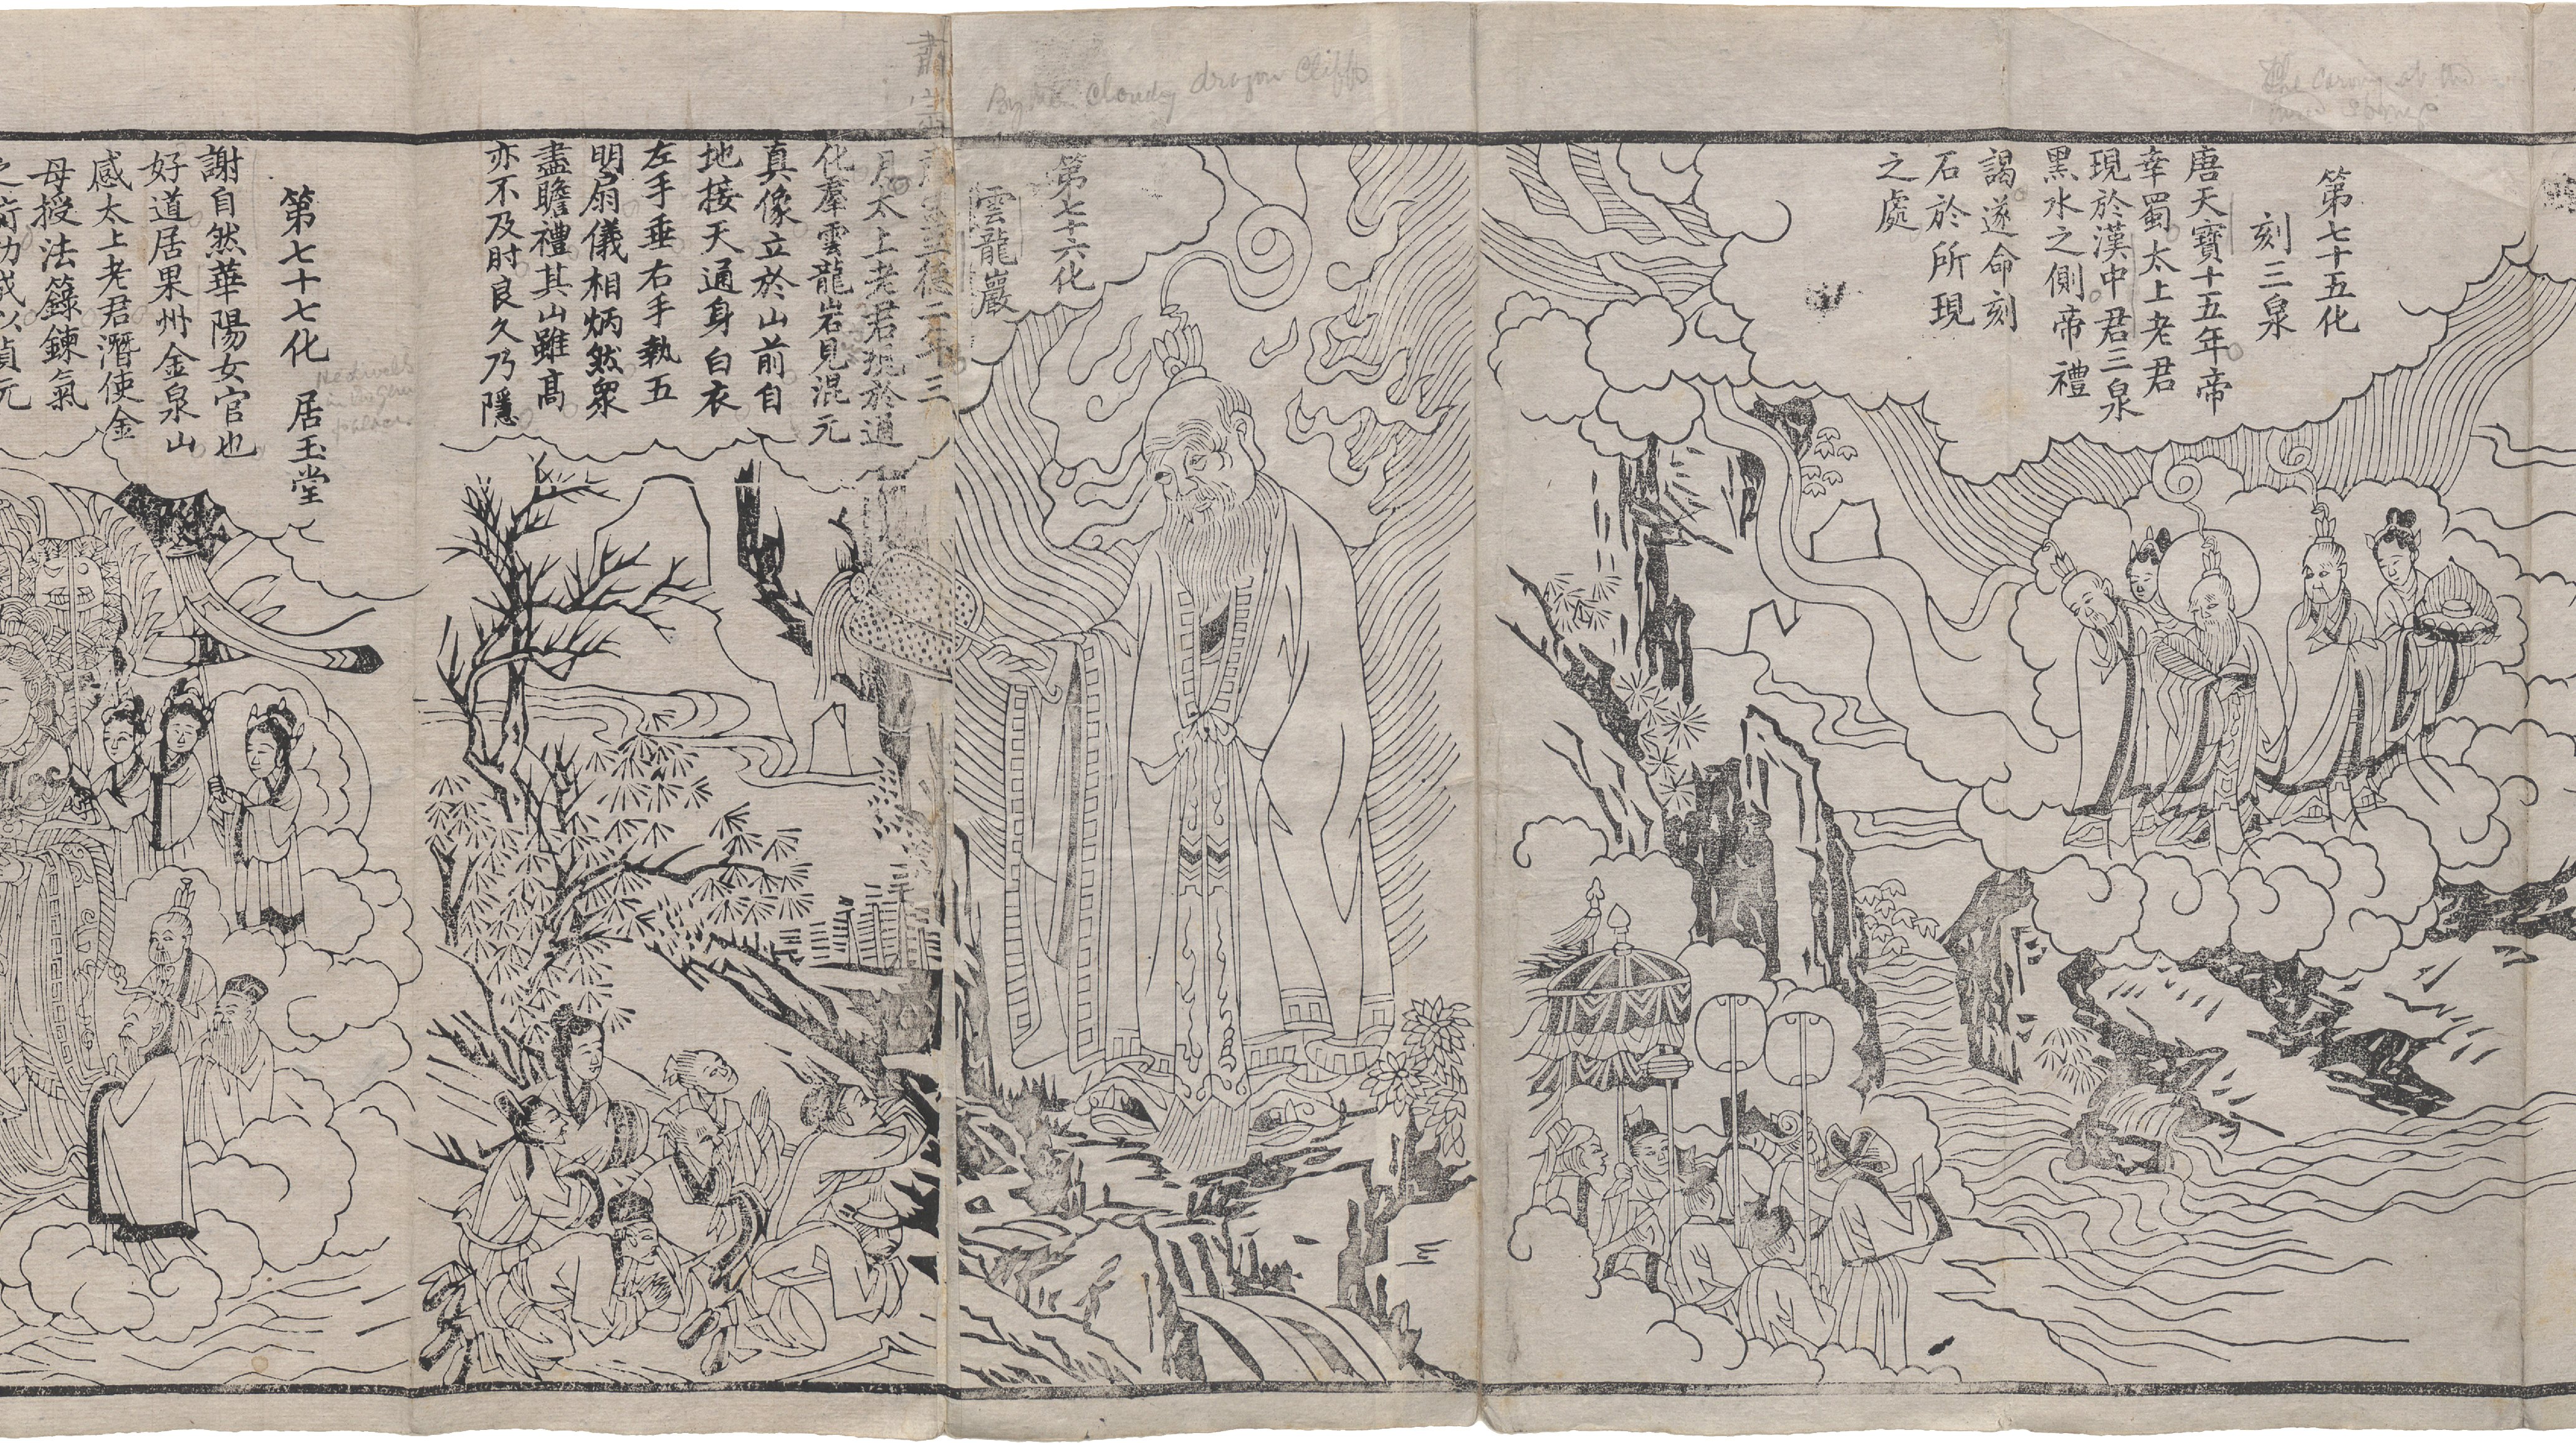 第七十五化
刻三泉
唐天寶十五年帝
幸蜀太上老君
現於漢中君三泉
黑水之側帝禮
謁遂命刻
石於所現
之處
第七十六化
雲龍巖
德二年三
月太上老君現於通
化羣雲龍岩見混元
真像立於山前自
地接天通身白衣
左手垂右手執五
明扇儀相炳然衆
盡瞻禮其山雖高
亦不及肘良久乃隱
第七十七化 居玉堂
謝自然華陽女官也
好道居果州金泉山
感太上老君潛使金
母授法籙鍊氣
之術功成以貞元
The Carving at the
three Springs
cloudy dragon Cliffs
He dwells
in the
palace